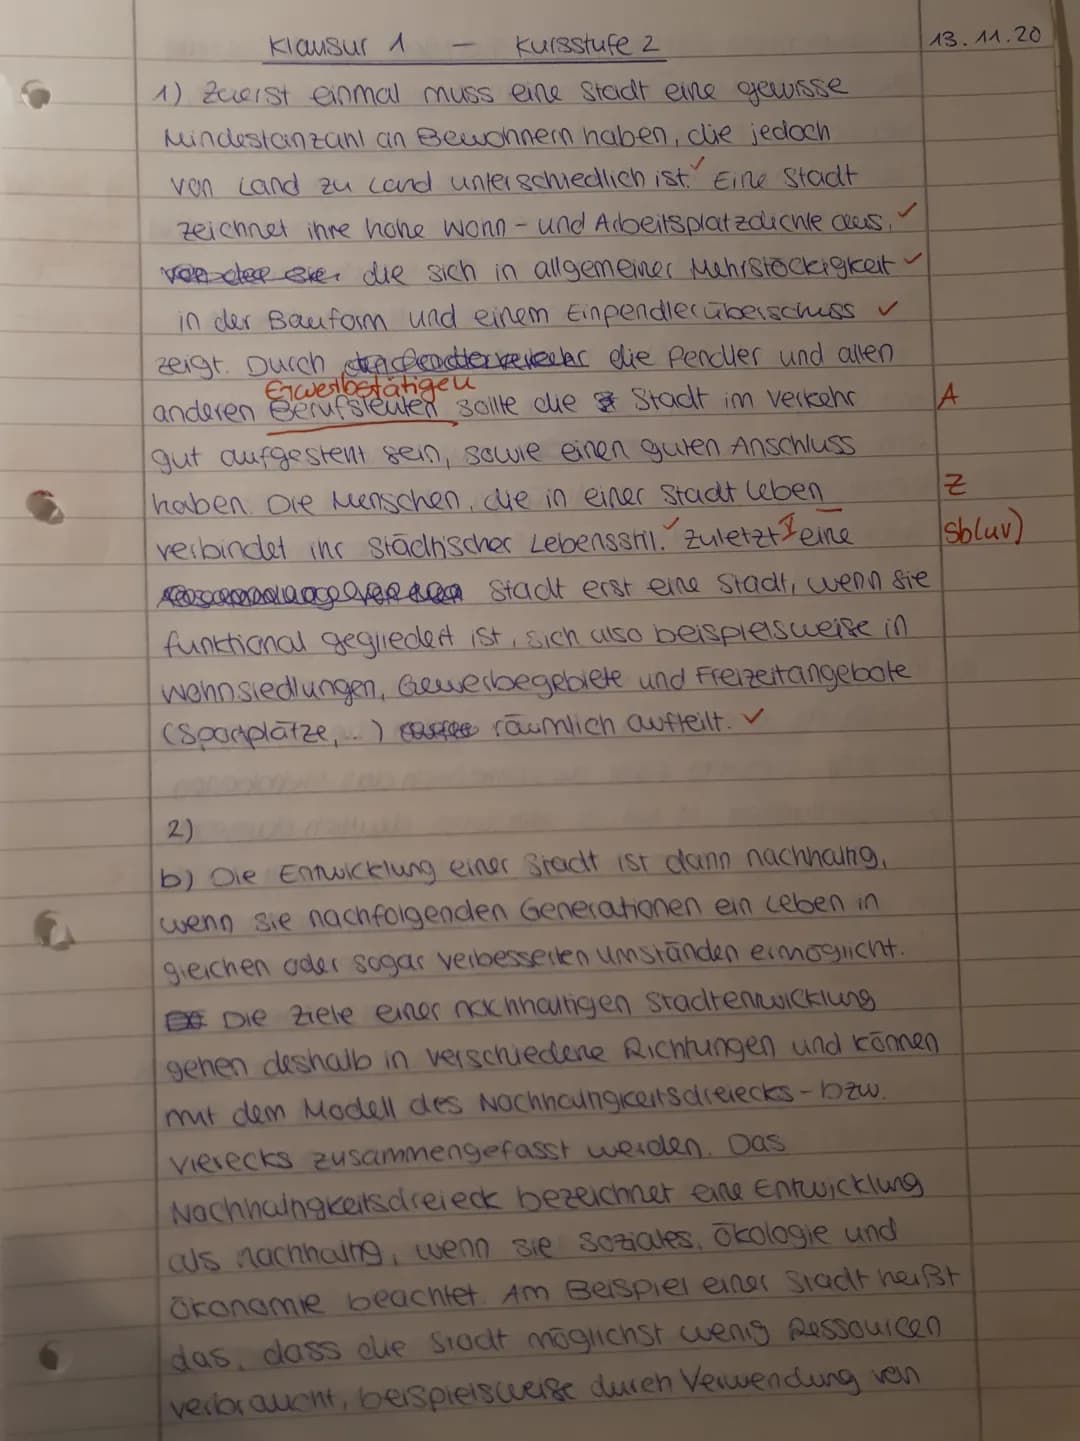 Klausur 1 - Kursstufe 2 13.11.20
1) Zuerst einmal muss eine Stadt eine gewisse
Mindestanzahl an Bewohnern haben, die jedoch
von Land zu Land unterschiedlich ist. Eine Stadt
zeichnet ihre hohe Wohn- und Arbeitsplatzdichte aus,
die sich in allgemeiner Mehrstöckigkeit
in der Bauform und einem Einpendlerüberschuss
zeigt. Durch die Pendler und allen
Erwerbstätigen
anderen Berufsleuten sollte die Stadt im Verkehr A
gut aufgestellt sein, sowie einen guten Anschluss
haben. Die Menschen, die in einer Stadt leben Z
verbindet ihr städtischer Lebensstil. Zuletzt I eine Sb(uv)
Stadt erst eine Stadt, wenn sie
funktional gegliedert ist, sich also beispielsweise in
Wohnsiedlungen, Gewerbegebiete und Freizeitangebote
(Sportplätze, ..) räumlich aufteilt.
2)
b) Die Entwicklung einer Stadt ist dann nachhaltig,
wenn sie nachfolgenden Generationen ein Leben in
gleichen oder sogar verbesserten Umständen ermöglicht.
Die Ziele einer nachhaltigen Stadtentwicklung
gehen deshalb in verschiedene Richtungen und können
mit dem Modell des Nachhaltigkeitsdreiecks - bzw.
vierecks zusammengefasst werden. Das
Nachhaltigkeitsdreieck bezeichnet eine Entwicklung
als nachhaltig, wenn sie Soziales, Ökologie und
Ökonomie beachtet. Am Beispiel einer Stadt heißt
das, dass die Stadt möglichst wenig Ressourcen
verbraucht, beispielsweise durch Verwendung von